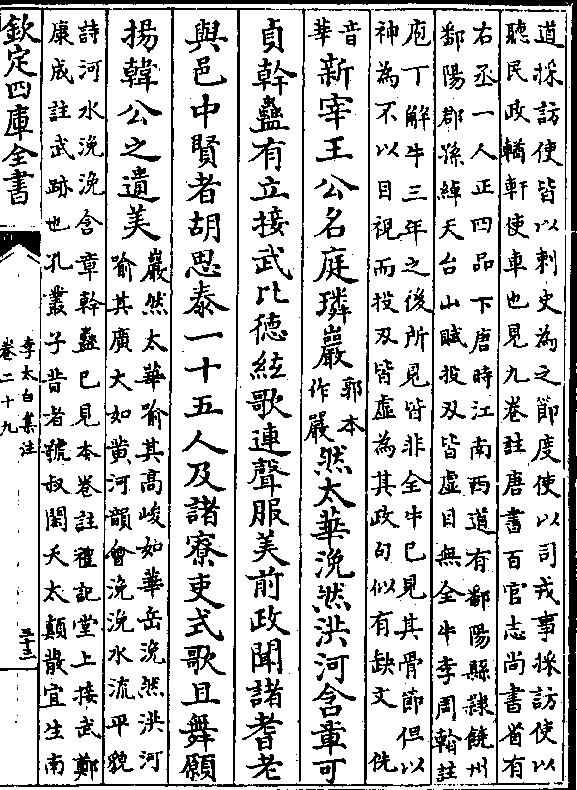 道採訪使皆以刺史為之節度使以司戎事採訪使以
聽民政輶軒使車也見九卷註唐書百官志尚書省有
右丞一人正四品下唐時江南西道有鄱陽縣隸饒州
鄱陽郡孫綽天台山賦投刃皆虛目無全牛李周翰註
庖丁解牛三年之後所見皆非全牛已見其骨節但以
神為不以目視而投刃皆虛為其政句似有缺文 侁
音華新宰王公名庭璘巖郭本作嚴然太華浼然洪河含章可
貞幹蠱有立接武比德絃歌連聲服美前政聞諸耆老
與邑中賢者胡思泰一十五人及諸寮吏式歌且舞願
揚韓公之遺美巖然太華喻其高峻如華岳浼然洪河喻其廣大如黄河韻會浼浼水流平貌
詩河水浼浼含章幹蠱已見本卷註禮記堂上接武鄭
康成註武跡也孔叢子昔者虢叔閎夭太顛散宜生南
欽定四庫全書
李太白集注
卷二十九
三十三